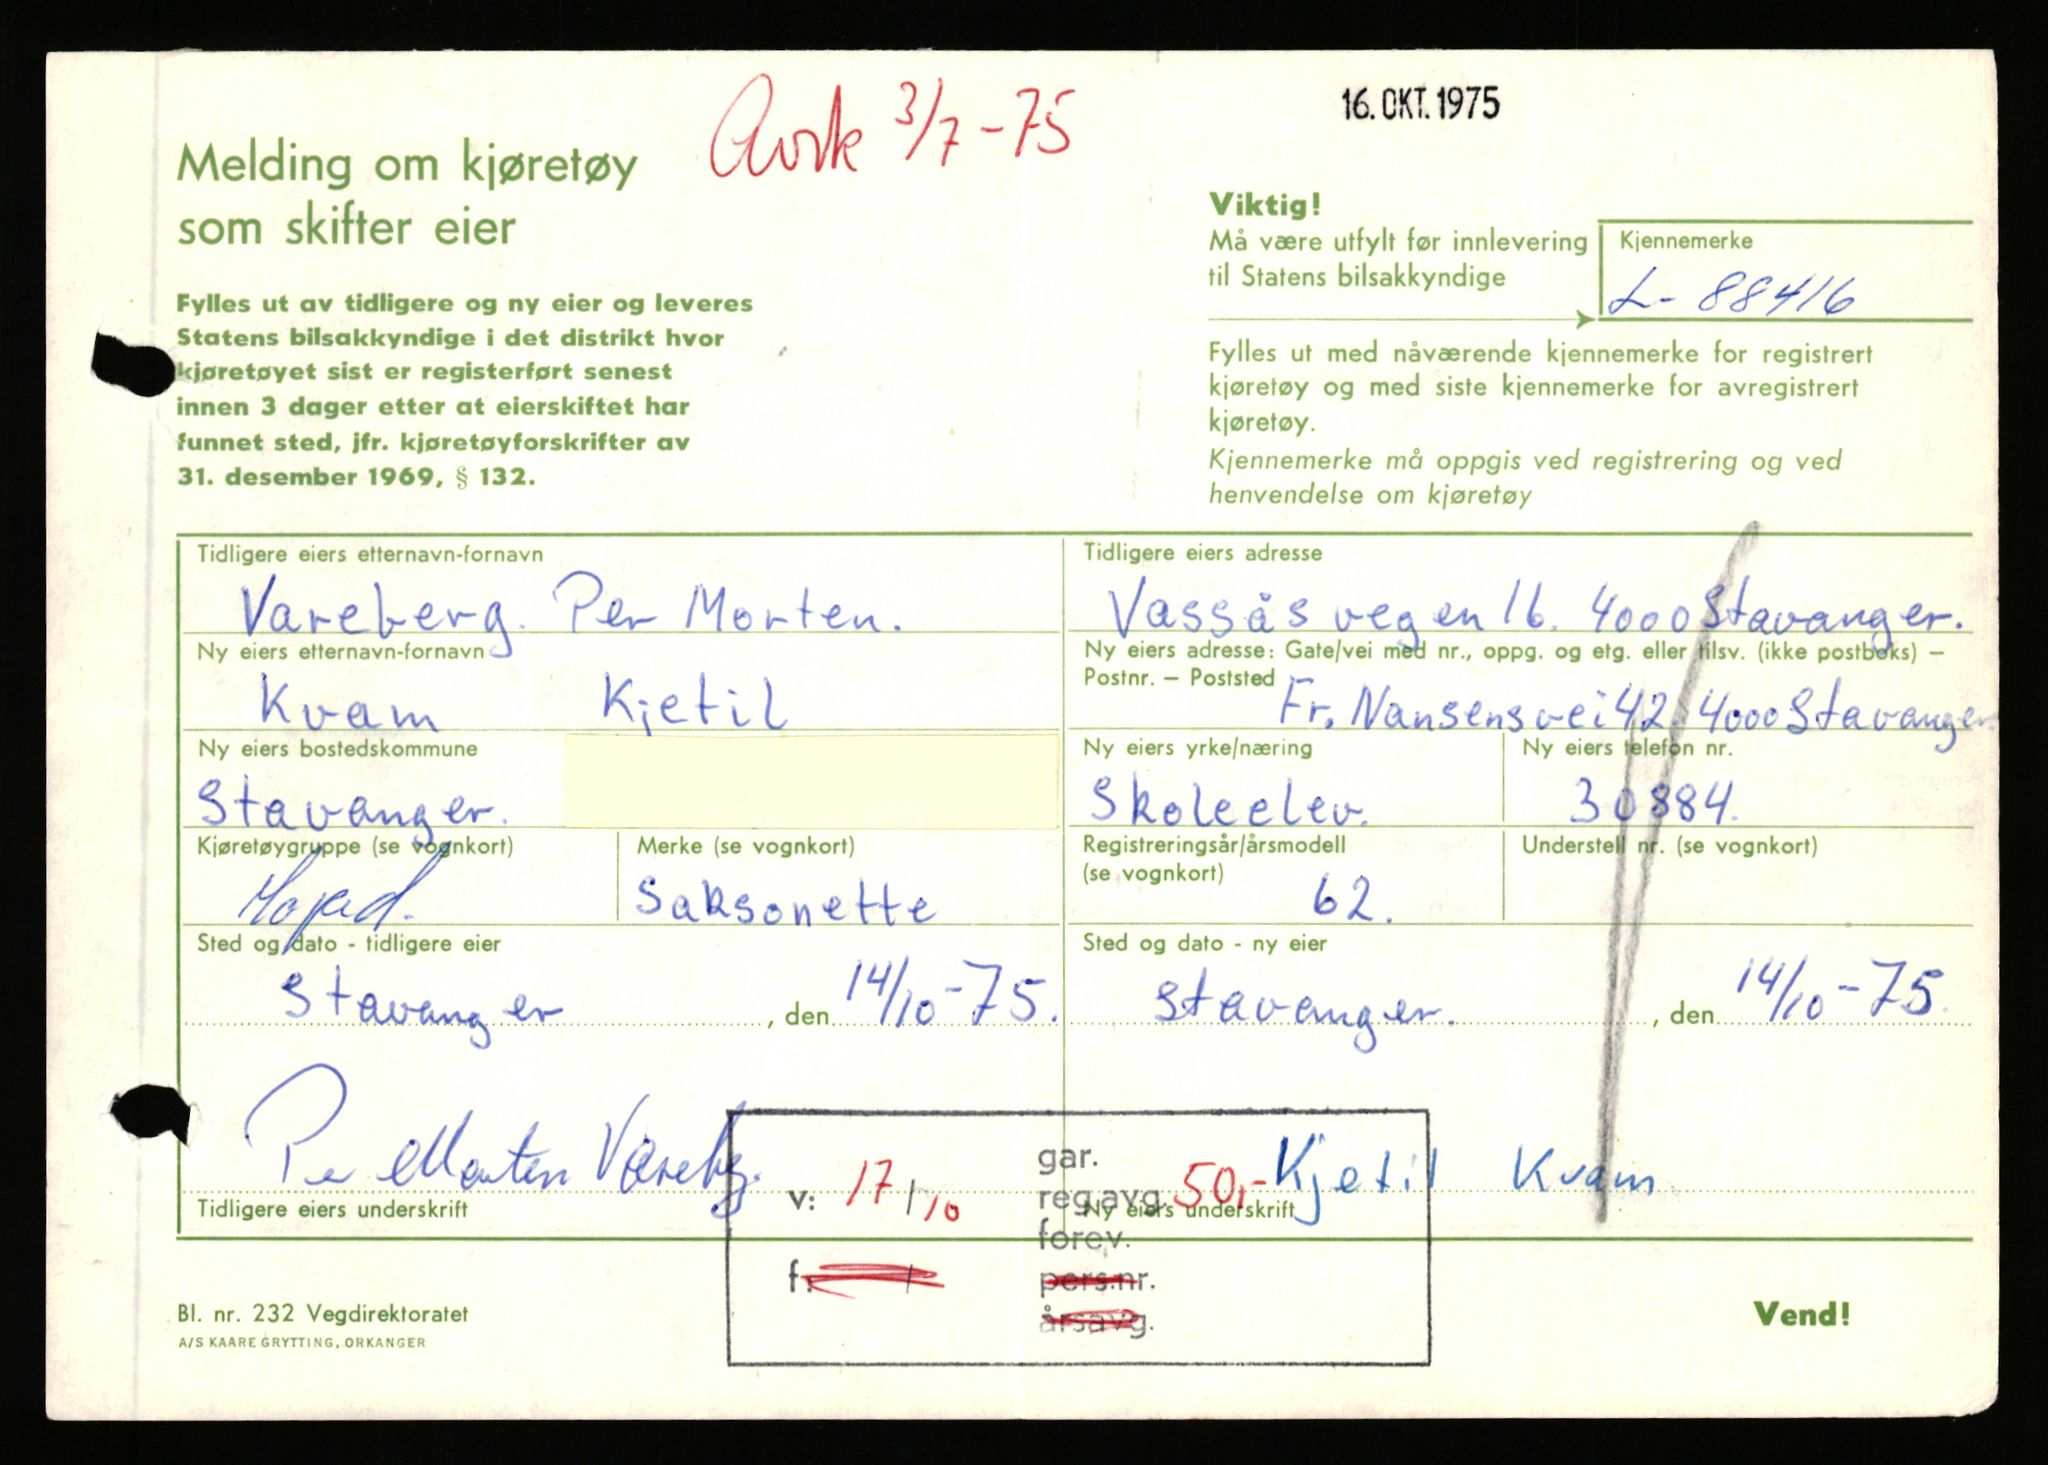 Avsk 3/7-75
16. OKT. 1975
Melding om kjøretøy
som skifter eier
Fylles ut av tidligere og ny eier og leveres
Statens bilsakkyndige i det distrikt hvor
kjøretøyet sist er registerført senest
innen 3 dager etter at eierskiftet har
funnet sted, jfr. kjøretøyforskrifter av
31. desember 1969, § 132.
Viktig!
Må være utfylt før innlevering
til Statens bilsakkyndige
Kjennemerke
L- 88416
Fylles ut med nåværende kjennemerke for registrert
kjøretøy og med siste kjennemerke for avregistrert
kjøretøy.
Kjennemerke må oppgis ved registrering og ved
henvendelse om kjøretøy
Tidligere eiers etternavn-fornavn
Vareberg. Per Morten.
Tidligere eiers adresse
Vassåsvegen 16. 4000 Stavanger.
Ny eiers etternavn-fornavn
Kvam Kjetil
Ny eiers adresse: Gate/vei med nr., oppg. og etg. eller tilsv. (ikke postboks) –
Postnr. – Poststed
Fr. Nansensvei 42. 4000 Stavanger
Ny eiers bostedskommune
Stavanger.
Ny eiers yrke/næring
Skoleelev.
Ny eiers telefon nr.
30884.
Kjøretøygruppe (se vognkort)
Moped.
Merke (se vognkort)
Saksonette
Registreringsår/årsmodell
(se vognkort)
62.
Understell nr. (se vognkort)
Sted og dato - tidligere eier
Stavanger , den 14/10-75.
Sted og dato - ny eier
Stavanger. , den 14/10-75.
Per Morten Vareberg.
Tidligere eiers underskrift
Kjetil Kvam
Ny eiers underskrift
v: 17/10
f:
gar.
reg.avg. 50,-
forev.
pers.nr.
årsavg.
Bl. nr. 232 Vegdirektoratet
A/S KAARE GRYTTING, ORKANGER
Vend!